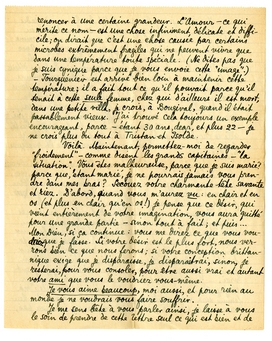 renoncer à une certaine grandeur. L'Amour - ce qui
mérite ce nom - est une chose infiniment délicate et diffi-
cile; on dirait que c'est une chose causée par certains
microbes extrêmement fragiles qui ne peuvent vivre que
dans une température toute spéciale. (Ne dites pas que
je suis cynique parce que je vous envoie cette "image".)
- Tourguéniev est arrivé bien loin à maintenir cette
température; il a fait tout ce qu'il pouvait parce qu'il
tenait à cette seule femme, chez qui d'ailleurs il est mort,
dans une petite villa, je crois, à Bougival, quand il était
passablement vieux. J'ai trouvé cela toujours un exemple
encourageant, parce - étant 30 ans, dear, et plus 22 - je
ne crois plus du tout à Tristan et Isolde.
Voilà. Maintenant, permettez-moi de regarder
"froidement" - comme disent les grands capitaines - la
situation. Vous êtes malheureuse, parce que je suis marié?
parce que, étant marié, je ne pourrais jamais vous pren-
dre dans mes bras? Écoutez votre clairvoyante
et bien. D'abord, quand vous m'aurez vu - en clair et en
os (et plus clair qu'en os!) je pense que ce désir, qui
vient entièrement de votre imagination, vous aura quitté
pour une grande partie - sinon tout à fait, et puis...
Mon Dieu, si ça continue - vous me direz ce que vous vou-
driez que je fasse: si votre désir est le plus fort, nous ver-
rons bien ce que nous ferons; si votre conception brittan-
nique exige que je disparaisse, je disparaîtrai, sinon, je
resterai, pour vous consoler, pour être aussi vrai et autant
votre ami que vous le voudrez vous-même.
Je vous aime beaucoup, moi aussi, et pour rien au
monde je ne voudrais vous faire souffrir.
Je me sens bête à vous parler ainsi, je laisse à vous
le soin de prendre de cette lettre seul ce qui est bien et de